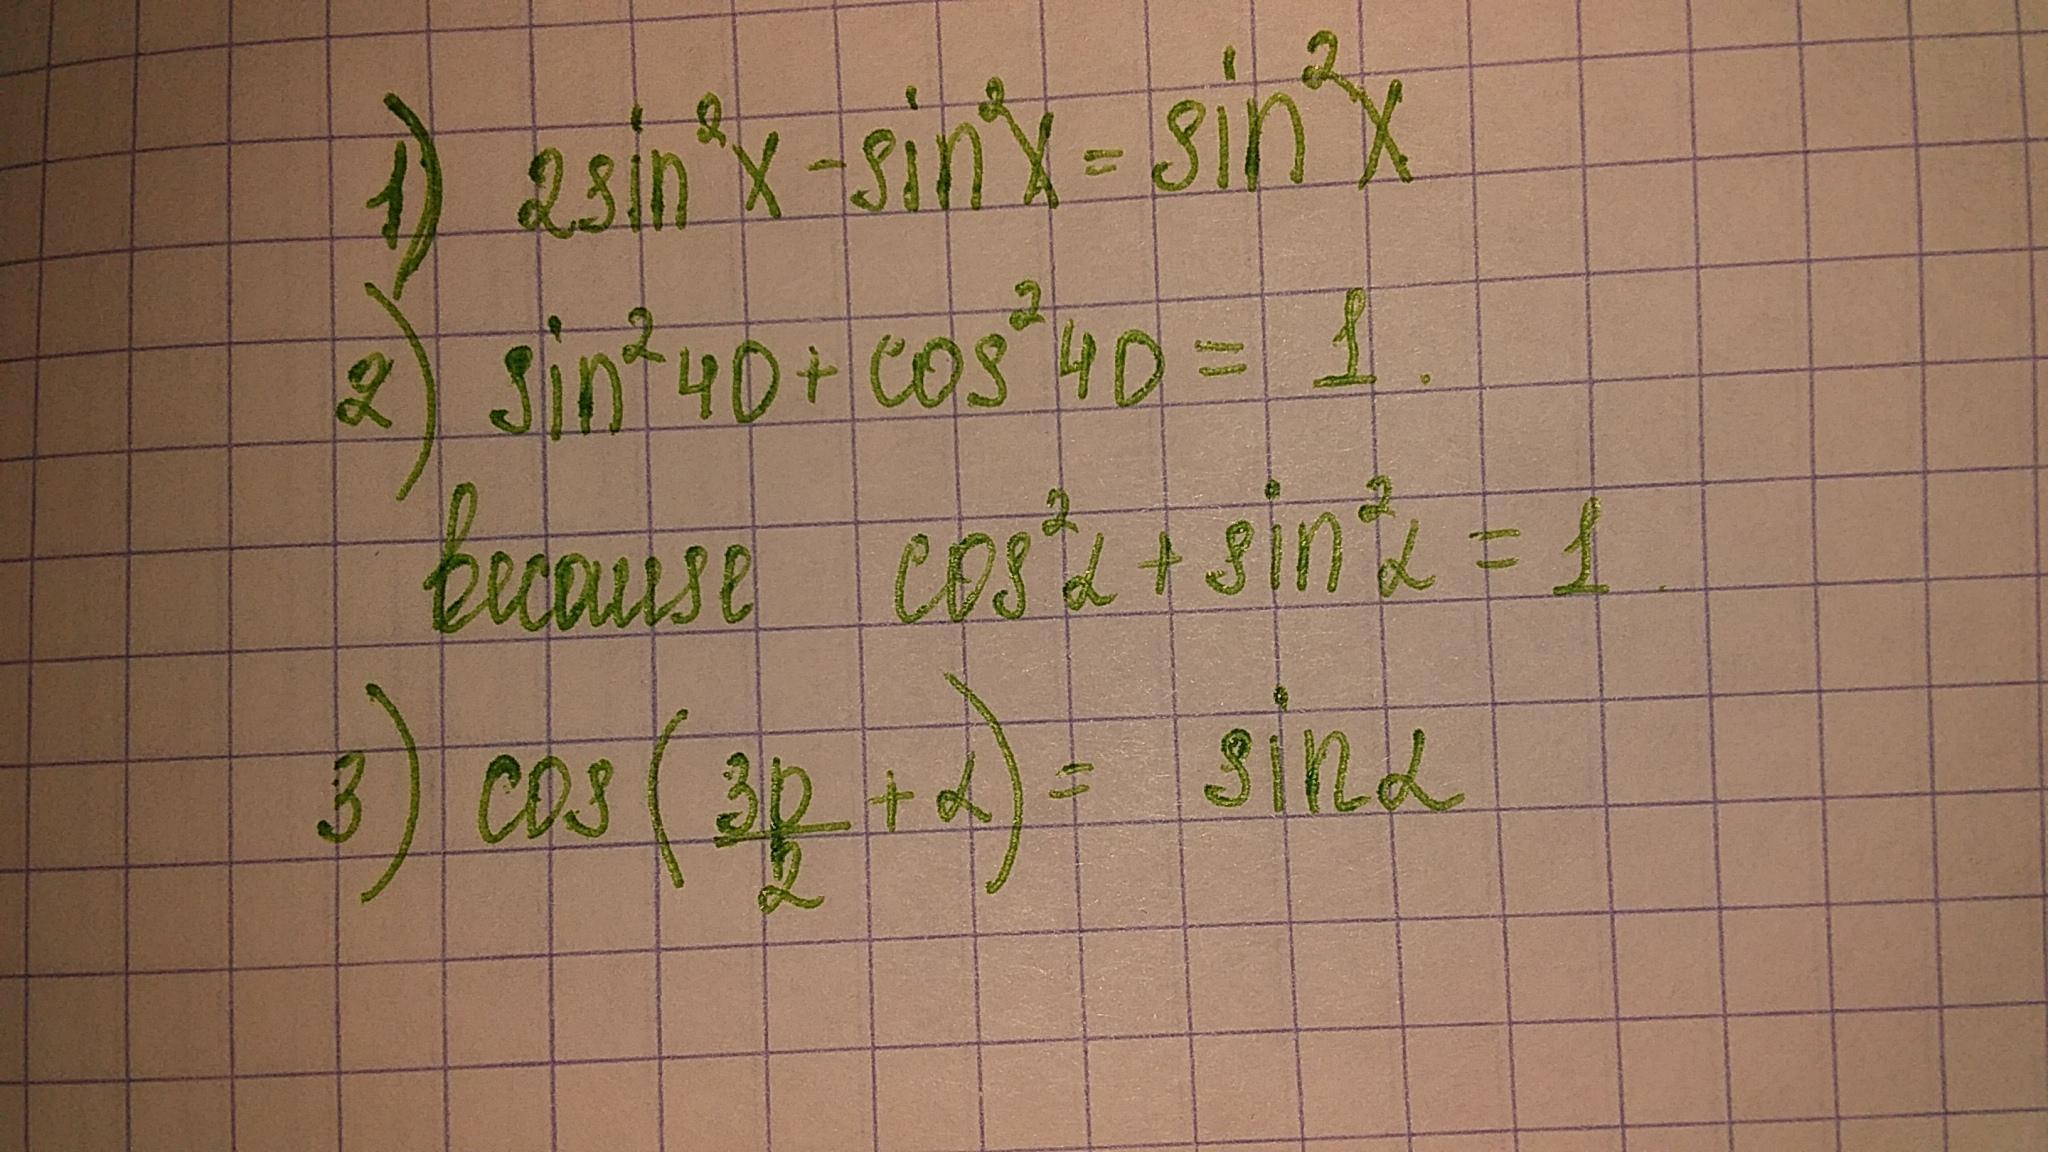 1) 2sin²x - sin²x = sin²x
2) sin²40 + cos²40 = 1.
because cos²α + sin²α = 1.
3) cos(3p/2 + α) = sinα